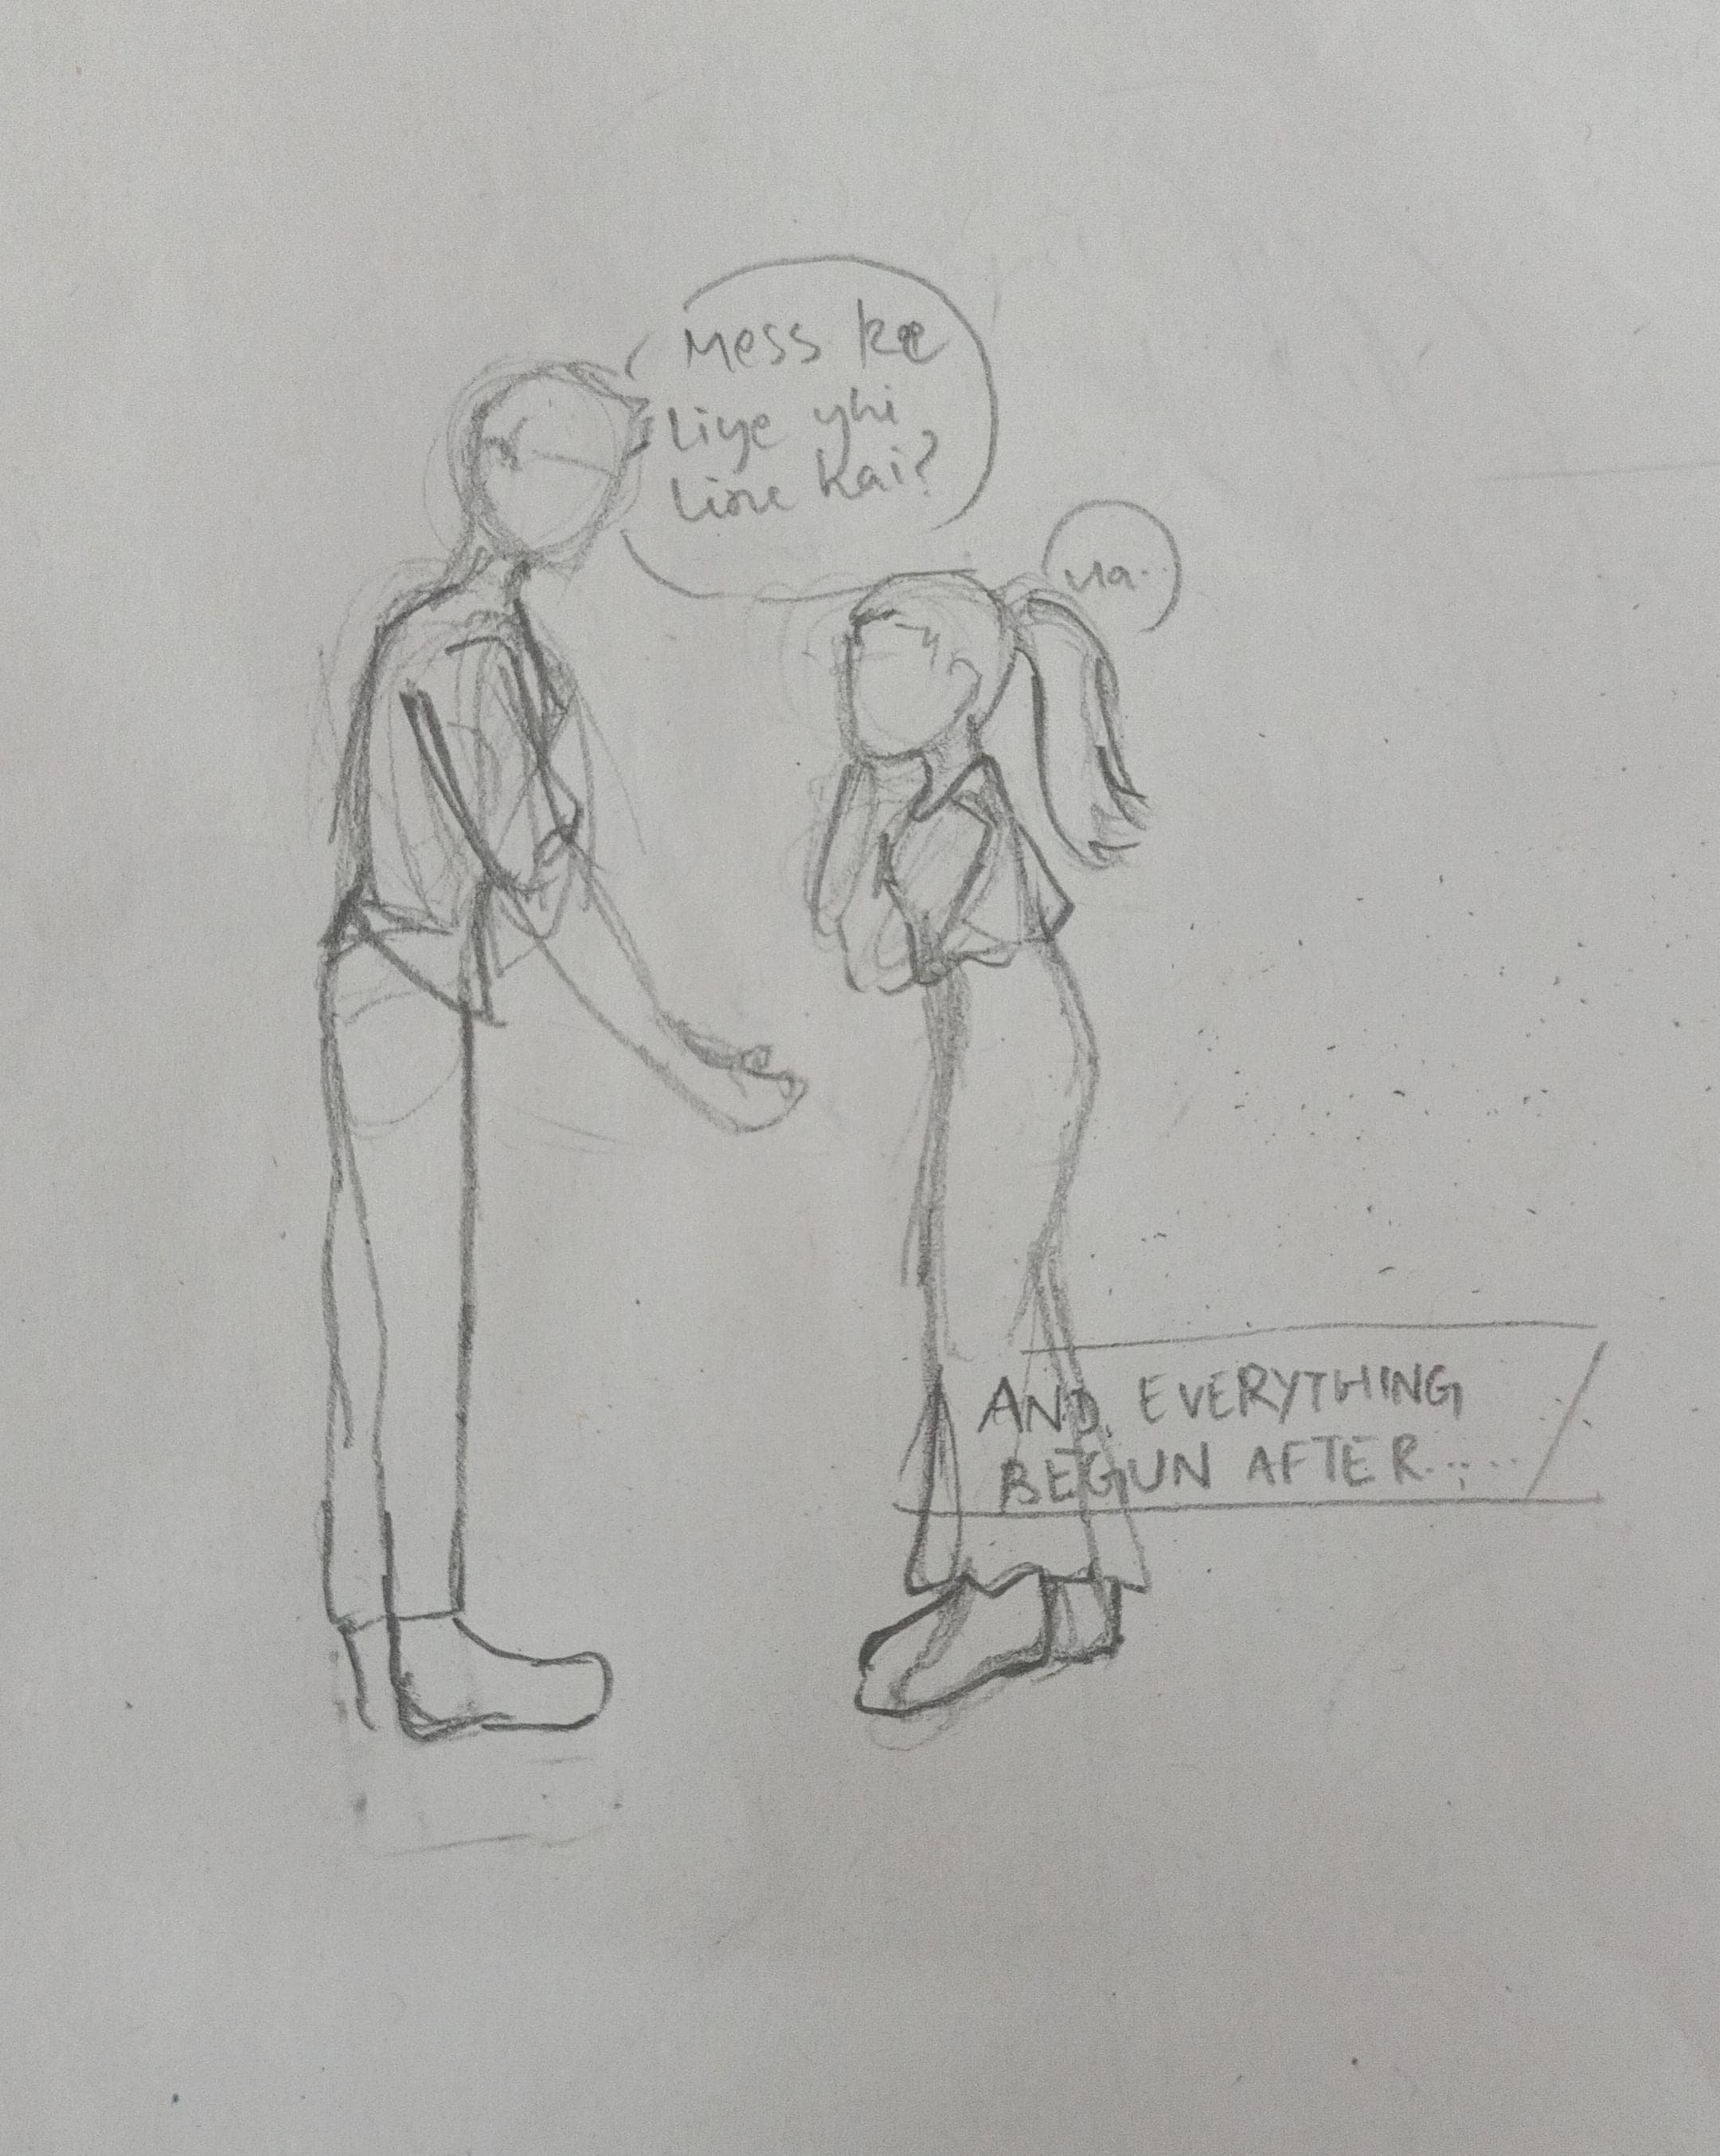 Mess ke
liye yhi
line hai?
Ha.
AND EVERYTHING
BEGUN AFTER......